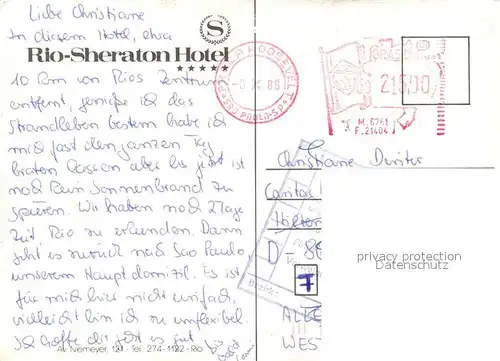 Liebe Christiane
In diesem Hotel, etwa
S
Rio-Sheraton Hotel
★★★★★
10 km von Rios Zentrum
entfernt, genieße ich das
Strandleben bestens habe ich
mich fast den ganzen Tag
braten lassen aber bis jetzt ist
noch kein Sonnenbrand zu
spüren. Wir haben noch 2 Tage
Zeit, Rio zu erkunden. Dann
geht es zurück nach Sao Paulo,
unserem Hauptdomizil. Es ist
für mich hier nicht einfach,
vielleicht bin ich zu unflexibel.
Ich hoffe dir geht es gut
Av. Niemeyer, 121 - Tel: 274-1122 - Rio
bis bald
ROOSEVELT
SÃO PAULO-SP
BRASIL
21600
M. 6761
F. 21404
Christiane
D
7
privacy protection
Datenschutz